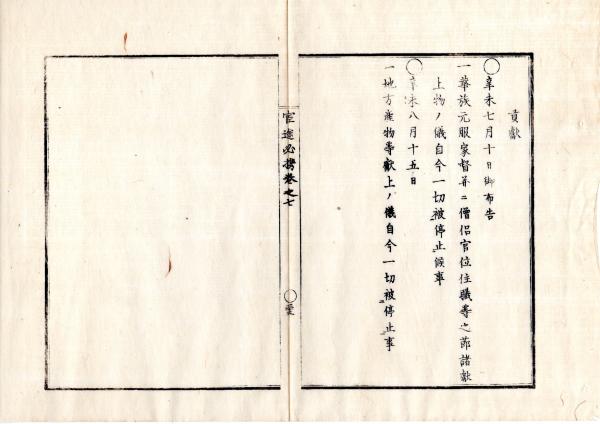 貢獻
○辛未七月十日御布告
一華族元服家督并ニ僧侶官位住職等之節諸獻
上物ノ儀自今一切被停止候事
○辛未八月十五日
一地方産物等獻上ノ儀自今一切被停止事
官途必携巻之七